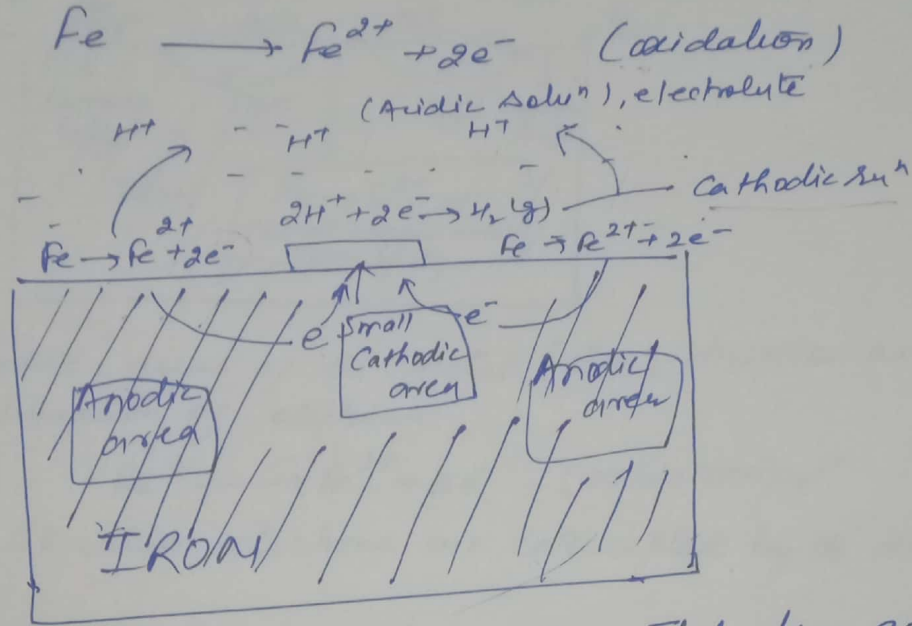 Fe ⟶ Fe²⁺ + 2e⁻ (oxidation)
(Acidic soluⁿ), electrolyte
H⁺ H⁺ H⁺
2H⁺ + 2e⁻ → H₂(g) Cathodic
Fe → Fe²⁺ + 2e⁻ Fe → Fe²⁺ + 2e⁻
e⁻ e⁻
Small
Cathodic
area
Anodic
area
Anodic
area
IRON